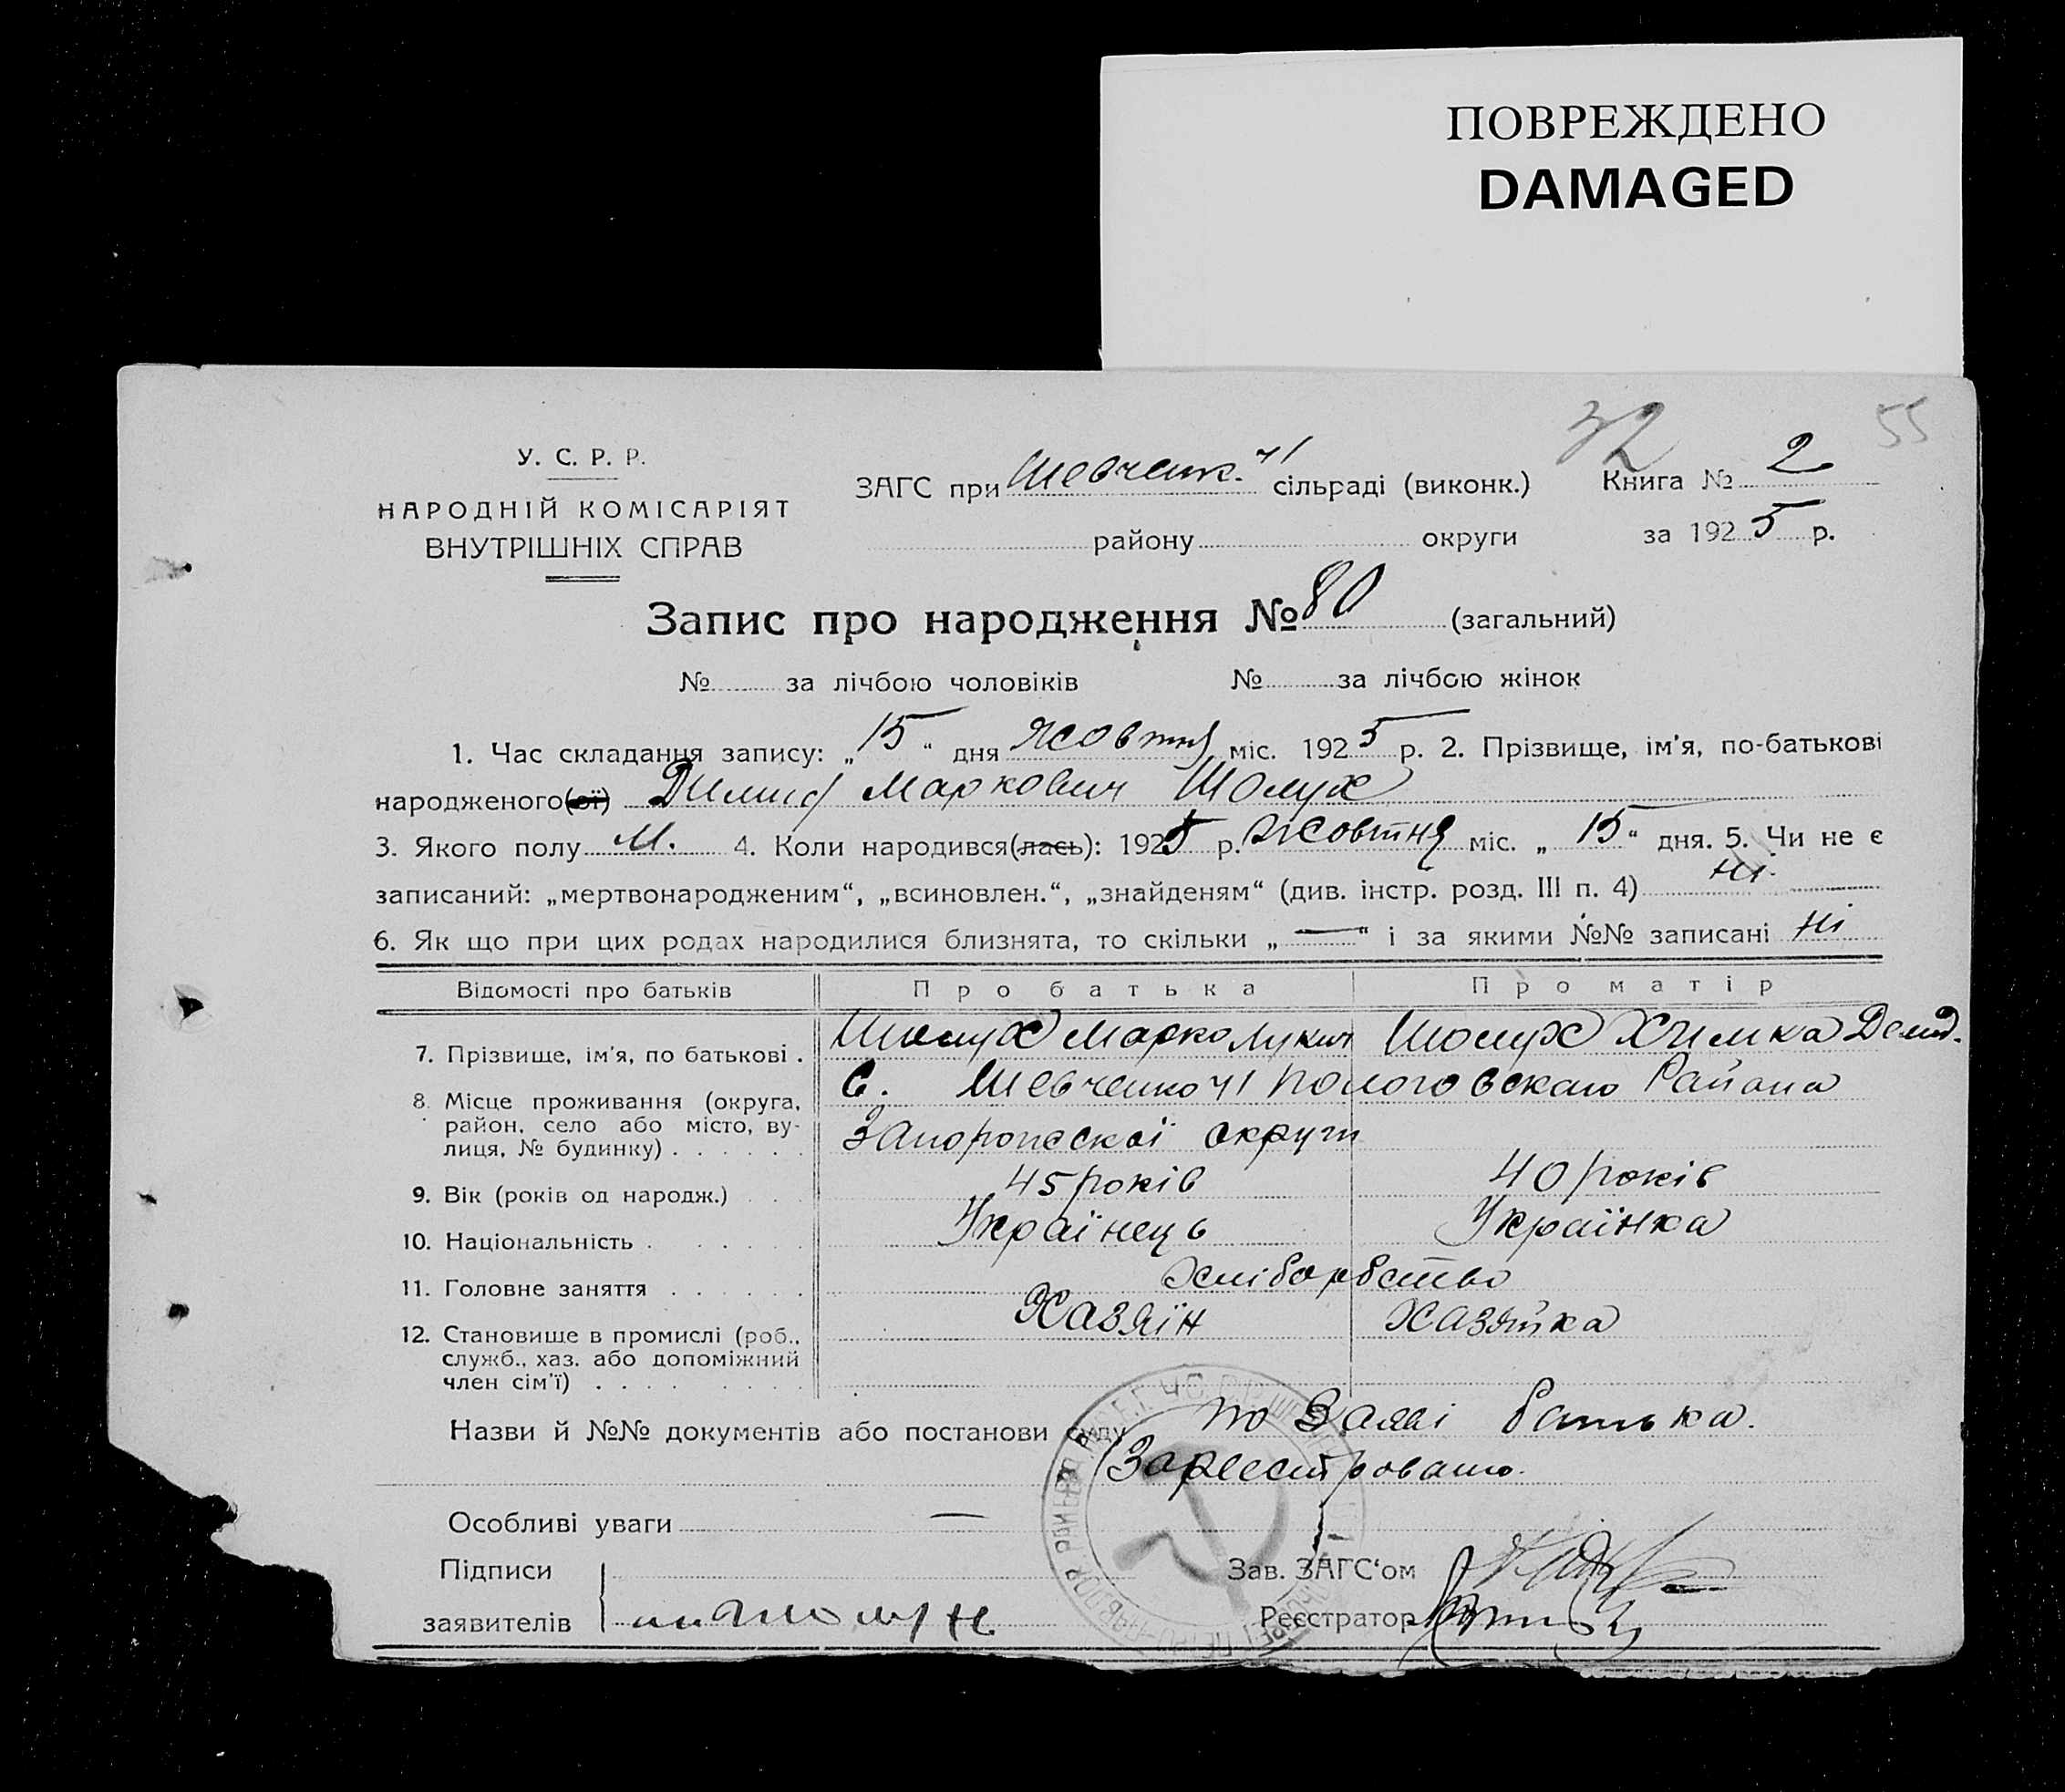 ПОВРЕЖДЕНО
DAMAGED
32 55
У. С. Р. Р.
НАРОДНІЙ КОМІСАРІЯТ
ВНУТРІШНІХ СПРАВ
ЗАГС при Шевченк. ч1 сільраді (виконк.) Книга № 2
району округи за 1925 р.
Запис про народження № 80 (загальний)
№ за лічбою чоловіків № за лічбою жінок
1. Час складання запису: „15“ дня жовтня міс. 1925 р. 2. Прізвище, ім'я, по-батькові
народженого(ої) Маркович Шолух
3. Якого полу М. 4. Коли народився(лась): 1925 р. жовтня міс. „15“ дня. 5. Чи не є
записаний: „мертвонародженим“, „всиновлен.“, „знайденям“ (див. інстр. розд. III п. 4) ні
6. Як що при цих родах народилися близнята, то скільки „—“ і за якими №№ записані ні
Відомості про батьків Про батька Про матір
7. Прізвище, ім'я, по батькові . Шолух Марко Лукич Шолух Химка Демид.
8. Місце проживання (округа, район, село або місто, вулиця, № будинку) . . . . . . С. Шевченко ч1 Пологовскаго Района
Запорожскої округи
9. Вік (років од народж.) . . . 45 років 40 років
10. Національність . . . . . . Українець Українка
11. Головне заняття . . . . . . Хліборобство
12. Становище в промислі (роб., служб., хаз. або допоміжний член сім'ї) . . . . . . . . Хазяїн Хазяйка
Назви й №№ документів або постанови суду по Заяві батька.
Зареєстровано.
Особливі уваги —
Підписи Зав. ЗАГС'ом
заявителів Реєстратор